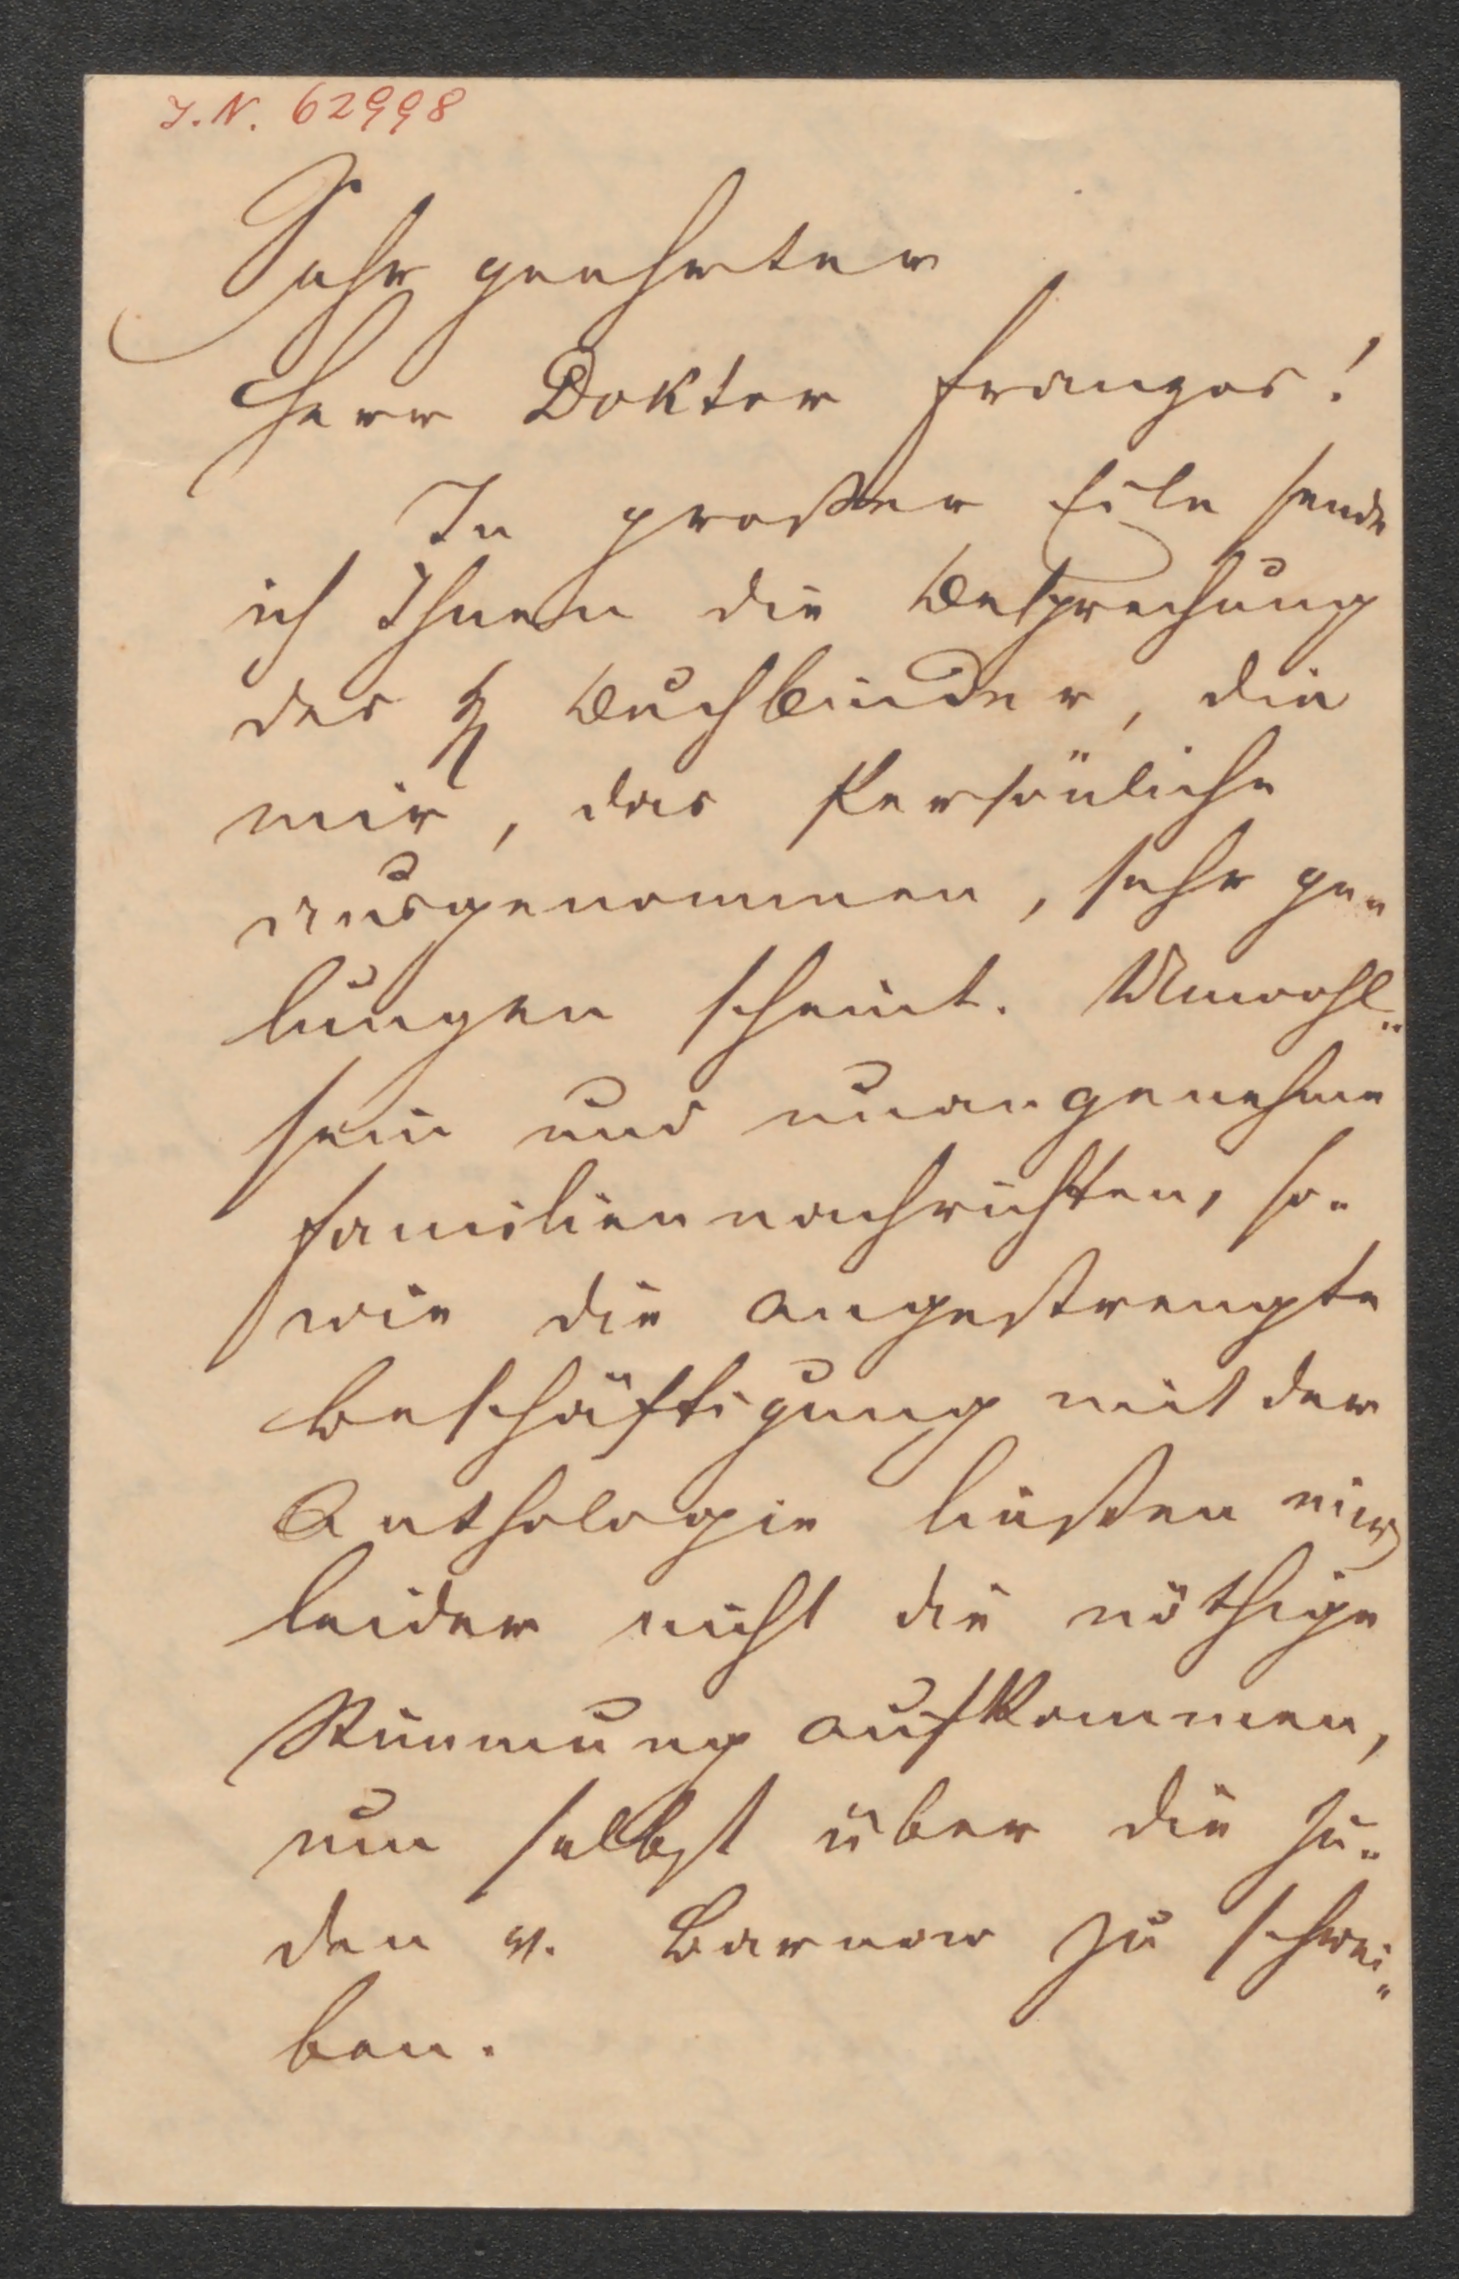 I.N. 62998
Sehr geehrter
Herr Doktor Franzos!
In großer Eile sende
ich Ihnen die Besprechung
des H Buchbinder, die
mir, das Persönliche
ausgenommen, sehr ge-
lungen scheint. Unwohl-
sein und unangenehme
Familiennachrichten, so-
wie die angestrengte
Beschäftigung mit der
Anthologie ließen mir
leider nicht die nöthige
Stimmung aufkommen,
um selbst über die Ju-
den v. Barnow zu schrei-
ben.